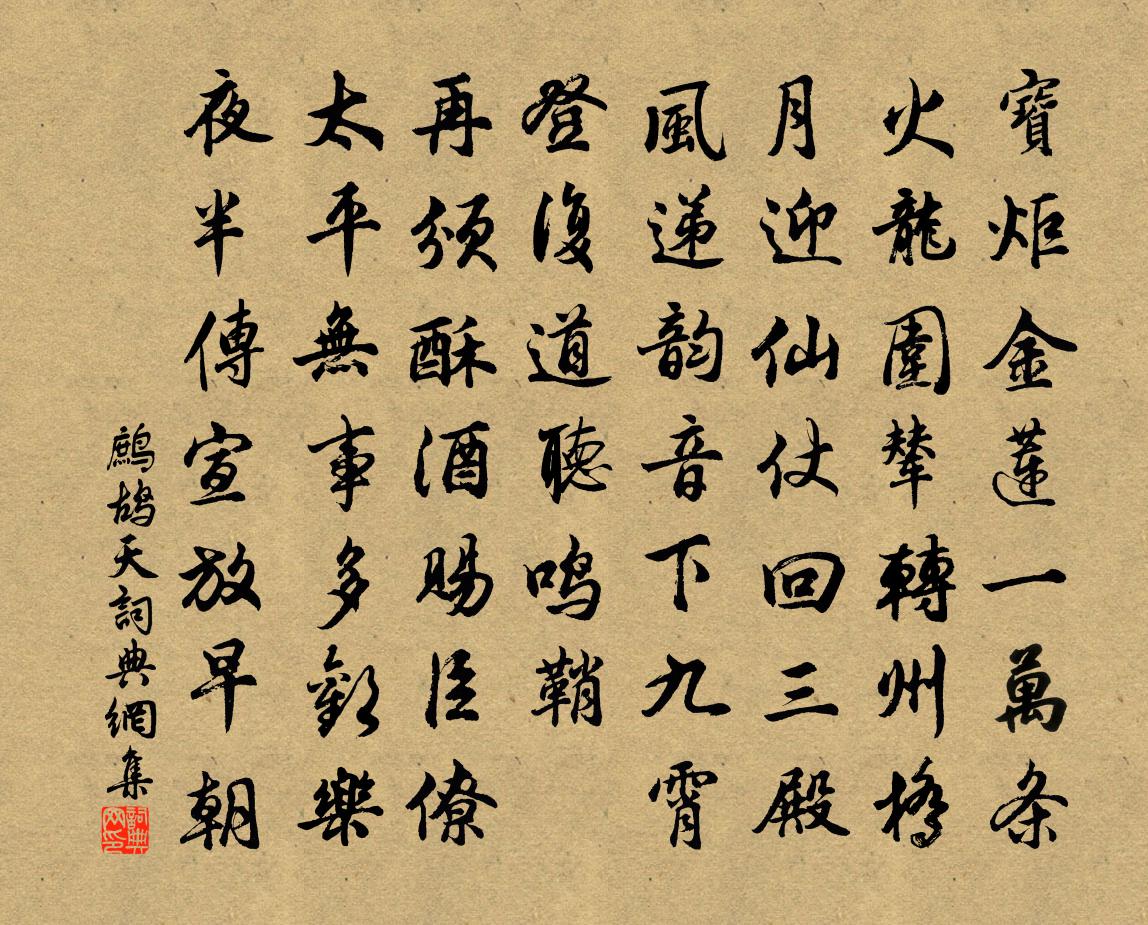 寶炬金蓮一萬条
火龍圍輦轉州橋
月迎仙仗回三殿
風递韵音下九霄
登復道聽鳴鞘
再頒酥酒賜臣僚
太平無事多歡樂
夜半傳宣放早朝
鷓鴣天詞典網集
詞典网印